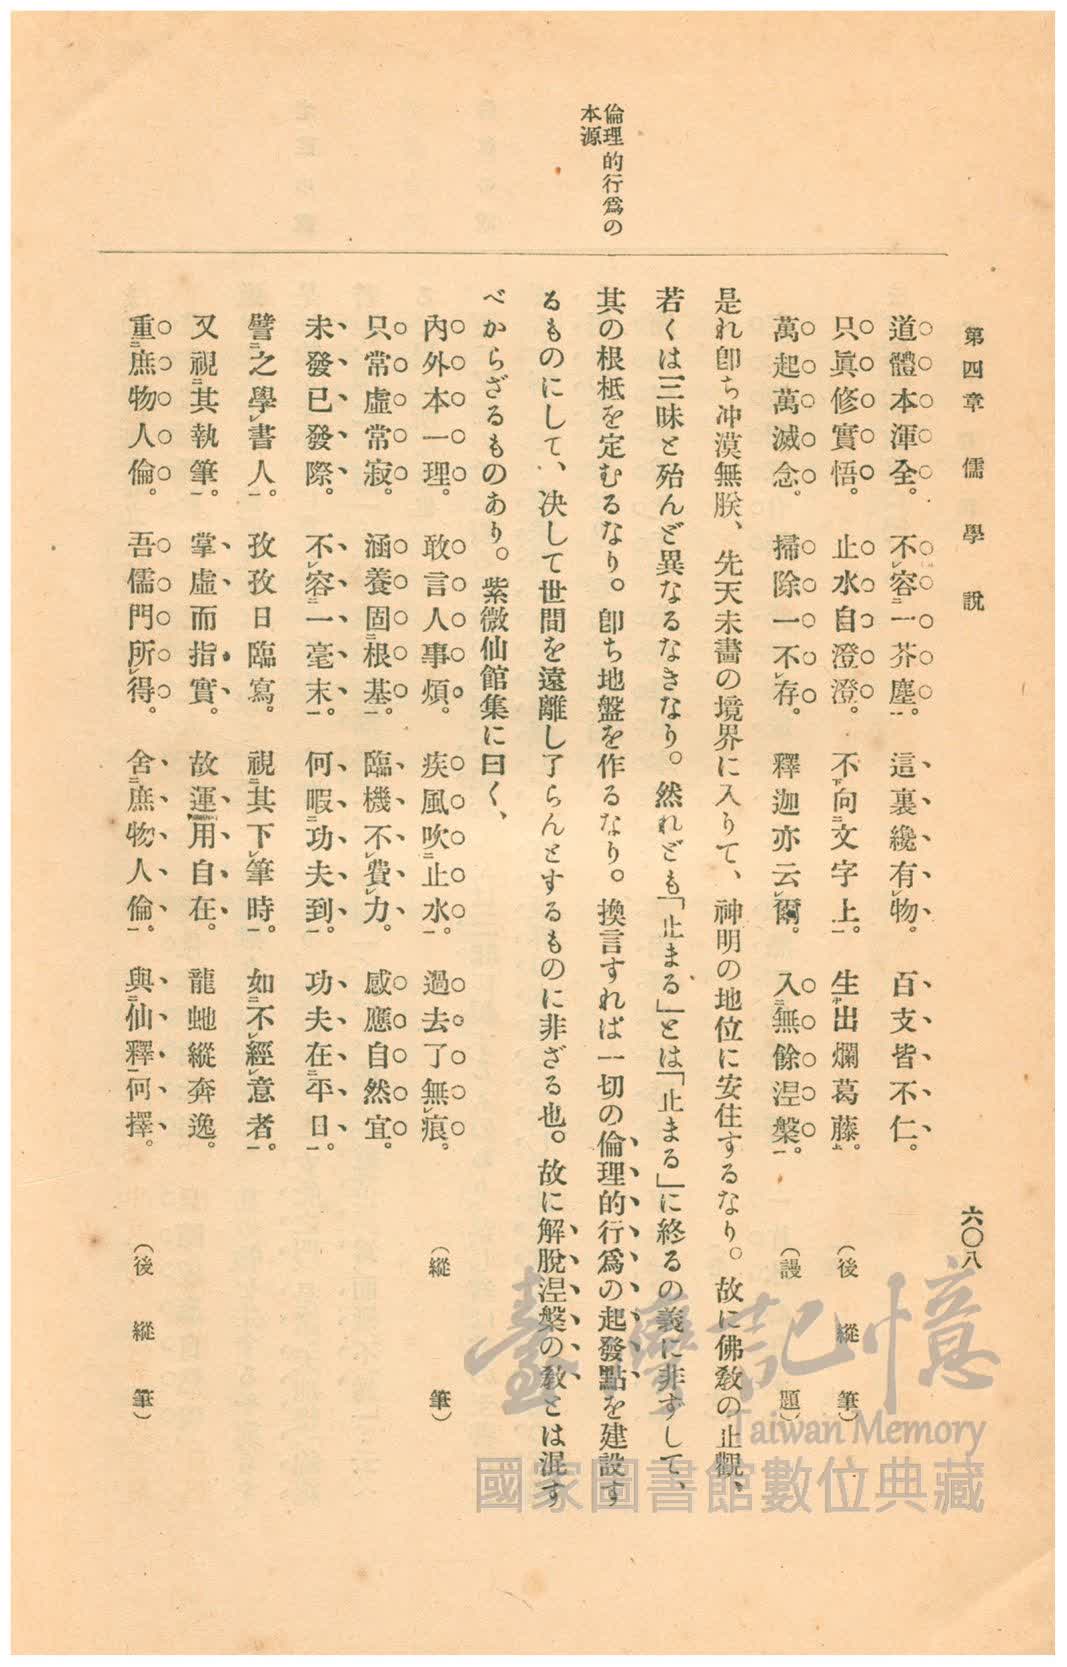 第四章 儒學說
六〇八
倫理的行爲の
本源
道體本渾全。 不容一芥塵。 這裏纔有物。 百支皆不仁。
只眞修實悟。 止水自澄澄。 不向文字上。 生出爛葛藤。 (後縱筆)
萬起萬滅念。 掃除一不存。 釋迦亦云爾。 入無餘涅槃。 (謾題)
是れ卽ち冲漠無朕、先天未畵の境界に入りて、神明の地位に安住するなり。故に佛敎の止觀、
若くは三昧と殆んど異なるなきなり。然れども「止まる」とは「止まる」に終るの義に非ずして、
其の根柢を定むるなり。卽ち地盤を作るなり。換言すれば一切の倫理的行爲の起發點を建設す
るものにして、決して世間を遠離し了らんとするものに非ざる也。故に解脫涅槃の敎とは混す
べからざるものあり。紫微仙館集に曰く、
內外本一理。 敢言人事煩。 疾風吹止水。 過去了無痕。 (縱筆)
只常虛常寂。 涵養固根基。 臨機不費力。 感應自然宜。
未發已發際。 不容一毫末。 何暇功夫到。 功夫在平日。
譬之學書人。 孜孜日臨寫。 視其下筆時。 如不經意者。
又視其執筆。 掌虛而指實。 故運用自在。 龍虵縱奔逸。
重庶物人倫。 吾儒門所得。 舍庶物人倫。 與仙釋何擇。 (後縱筆)
臺灣記憶
Taiwan Memory
國家圖書館數位典藏